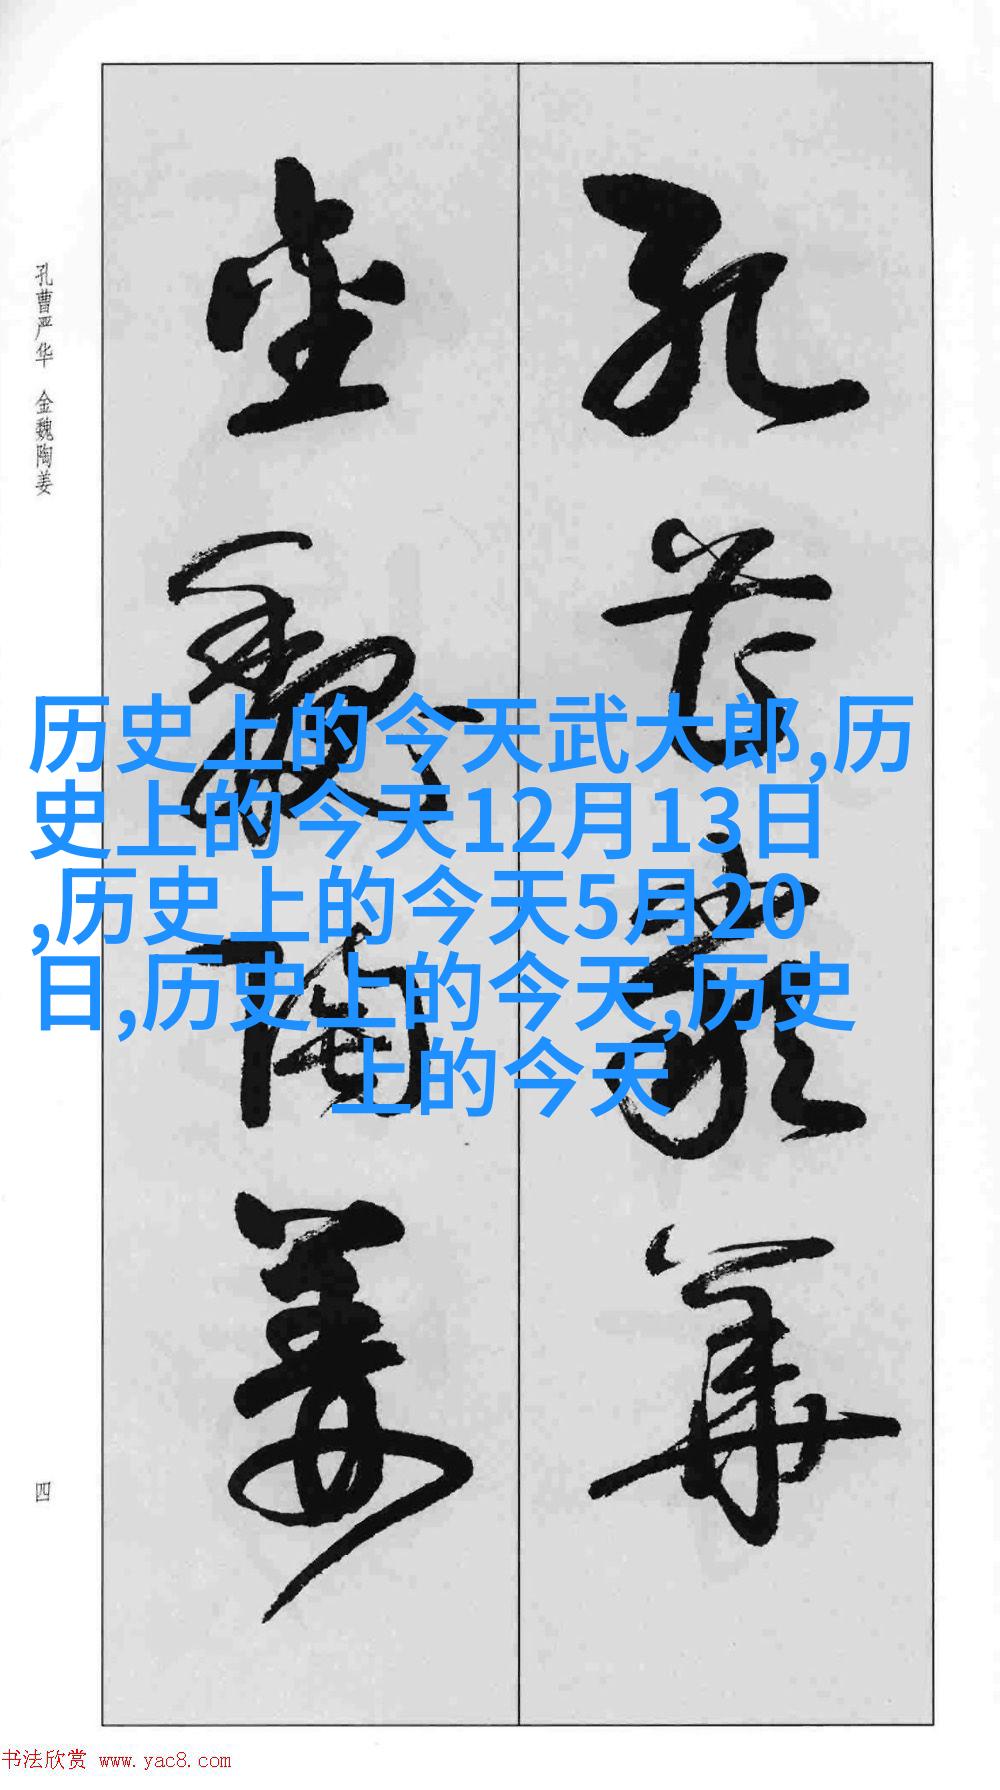 孔曹严华
金魏陶姜
孔曹严华 金魏陶姜
历史上的今天武大郎,历
史上的今天12月13日
,历史上的今天5月20
日,历史上的今天,历史
上的今天
四
书法欣赏 www.yac8.com